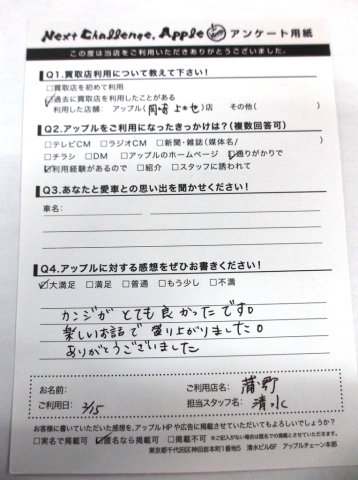 Next Challenge. Apple アンケート用紙
この度は当店をご利用いただきありがとうございました。
Q1.買取店利用について教えて下さい！
□買取店を初めて利用
☑過去に買取店を利用したことがある
利用した店舗： アップル( 岡崎 )店 その他( )
Q2.アップルをご利用になったきっかけは？(複数回答可)
□テレビCM □ラジオCM □新聞・雑誌(媒体名/ )
□チラシ □DM □アップルのホームページ ☑通りがかりで
☑利用経験があるので □紹介 □スタッフに誘われて
Q3.あなたと愛車との思い出を聞かせください！
車名：
Q4.アップルに対する感想をぜひお書きください！
☑大満足 □満足 □普通 □もう少し □不満
カンジがとても良かったです。
楽しいお話で盛り上がりました。
ありがとうございました
お名前： ご利用店名： 蒲郡
ご利用日： 2/15 担当スタッフ名： 清水
お客様に書いていただいた感想を、アップルHPや広告に掲載させていただいてもよろしいでしょうか？
□実名で掲載可 ☑匿名なら掲載可 □掲載不可 ※ご記入がない場合は匿名での掲載とさせていただきます。
東京都千代田区神田岩本町1番地5 清水ビル6F アップルチェーン本部